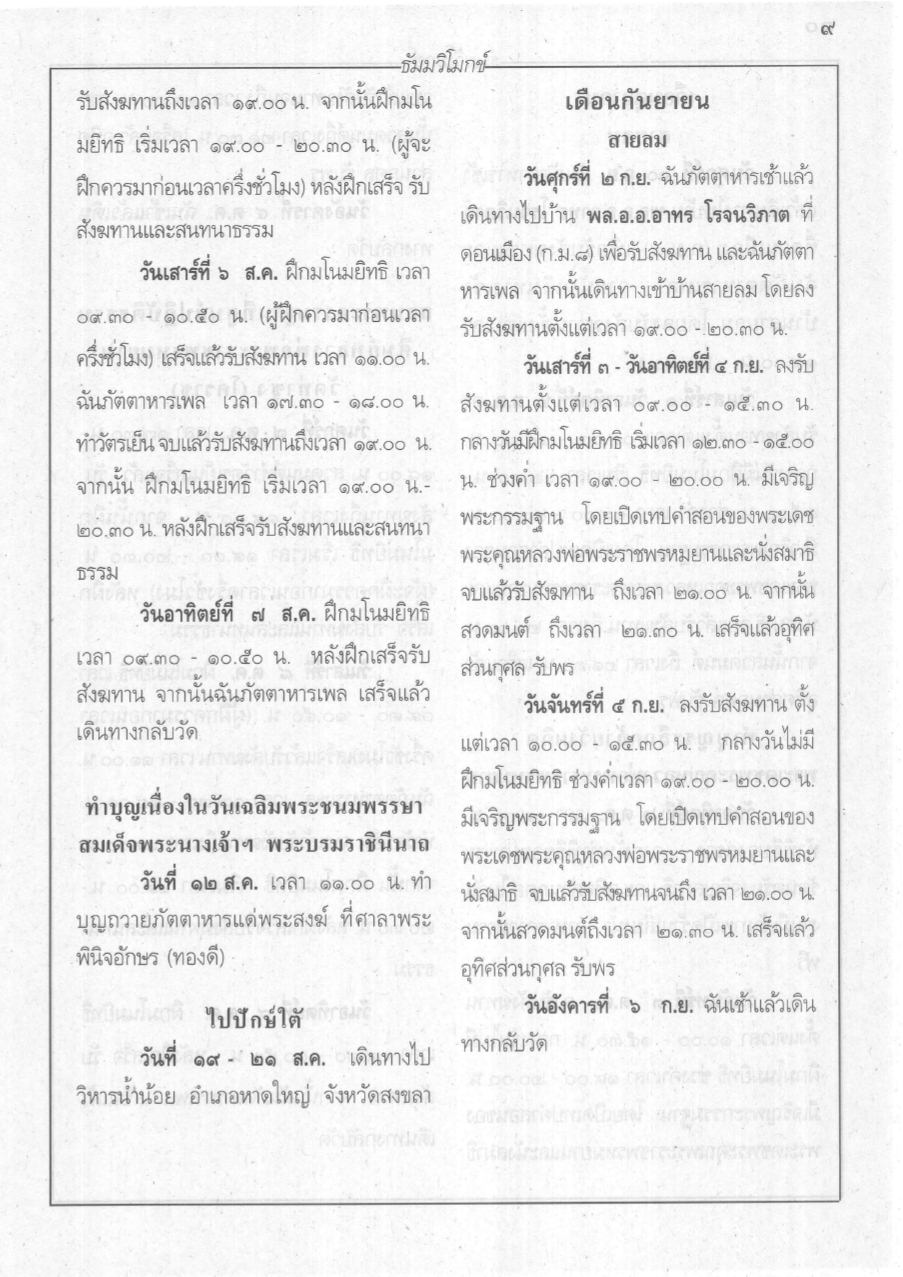 ๙
ธัมมวิโมกข์
รับสังฆทานถึงเวลา ๑๙.๐๐ น. จากนั้นฝึกมโน
มยิทธิ เริ่มเวลา ๑๙.๐๐ - ๒๐.๓๐ น. (ผู้จะ
ฝึกควรมาก่อนเวลาครึ่งชั่วโมง) หลังฝึกเสร็จ รับ
สังฆทานและสนทนาธรรม
วันเสาร์ที่ ๖ ส.ค. ฝึกมโนมยิทธิ เวลา
๐๙.๓๐ - ๑๐.๕๐ น. (ผู้ฝึกควรมาก่อนเวลา
ครึ่งชั่วโมง) เสร็จแล้วรับสังฆทาน เวลา ๑๑.๐๐ น.
ฉันภัตตาหารเพล เวลา ๑๗.๓๐ - ๑๘.๐๐ น.
ทำวัตรเย็น จบแล้วรับสังฆทานถึงเวลา ๑๙.๐๐ น.
จากนั้น ฝึกมโนมยิทธิ เริ่มเวลา ๑๙.๐๐ น.-
๒๐.๓๐ น. หลังฝึกเสร็จรับสังฆทานและสนทนา
ธรรม
วันอาทิตย์ที่ ๗ ส.ค. ฝึกมโนมยิทธิ
เวลา ๐๙.๓๐ - ๑๐.๕๐ น. หลังฝึกเสร็จรับ
สังฆทาน จากนั้นฉันภัตตาหารเพล เสร็จแล้ว
เดินทางกลับวัด
ทำบุญเนื่องในวันเฉลิมพระชนมพรรษา
สมเด็จพระนางเจ้าฯ พระบรมราชินีนาถ
วันที่ ๑๒ ส.ค. เวลา ๑๑.๐๐ น. ทำ
บุญถวายภัตตาหารแด่พระสงฆ์ ที่ศาลาพระ
พินิจอักษร (ทองดี)
ไปปักษ์ใต้
วันที่ ๑๙ - ๒๑ ส.ค. เดินทางไป
วิหารน้ำน้อย อำเภอหาดใหญ่ จังหวัดสงขลา
เดือนกันยายน
สายลม
วันศุกร์ที่ ๒ ก.ย. ฉันภัตตาหารเช้าแล้ว
เดินทางไปบ้าน พล.อ.อ.อาทร โรจนวิภาต ที่
ดอนเมือง (ก.ม.๘) เพื่อรับสังฆทาน และฉันภัตตา
หารเพล จากนั้นเดินทางเข้าบ้านสายลม โดยลง
รับสังฆทานตั้งแต่เวลา ๑๙.๐๐ - ๒๐.๓๐ น.
วันเสาร์ที่ ๓ - วันอาทิตย์ที่ ๔ ก.ย. ลงรับ
สังฆทานตั้งแต่เวลา ๐๙.๐๐ - ๑๕.๓๐ น.
กลางวันมีฝึกมโนมยิทธิ เริ่มเวลา ๑๒.๓๐ - ๑๕.๐๐
น. ช่วงค่ำ เวลา ๑๙.๐๐ - ๒๐.๐๐ น. มีเจริญ
พระกรรมฐาน โดยเปิดเทปคำสอนของพระเดช
พระคุณหลวงพ่อพระราชพรหมยานและนั่งสมาธิ
จบแล้วรับสังฆทาน ถึงเวลา ๒๑.๐๐ น. จากนั้น
สวดมนต์ ถึงเวลา ๒๑.๓๐ น. เสร็จแล้วอุทิศ
ส่วนกุศล รับพร
วันจันทร์ที่ ๕ ก.ย. ลงรับสังฆทาน ตั้ง
แต่เวลา ๑๐.๐๐ - ๑๕.๓๐ น. กลางวันไม่มี
ฝึกมโนมยิทธิ ช่วงค่ำเวลา ๑๙.๐๐ - ๒๐.๐๐ น.
มีเจริญพระกรรมฐาน โดยเปิดเทปคำสอนของ
พระเดชพระคุณหลวงพ่อพระราชพรหมยานและ
นั่งสมาธิ จบแล้วรับสังฆทานจนถึง เวลา ๒๑.๐๐ น.
จากนั้นสวดมนต์ถึงเวลา ๒๑.๓๐ น. เสร็จแล้ว
อุทิศส่วนกุศล รับพร
วันอังคารที่ ๖ ก.ย. ฉันเช้าแล้วเดิน
ทางกลับวัด